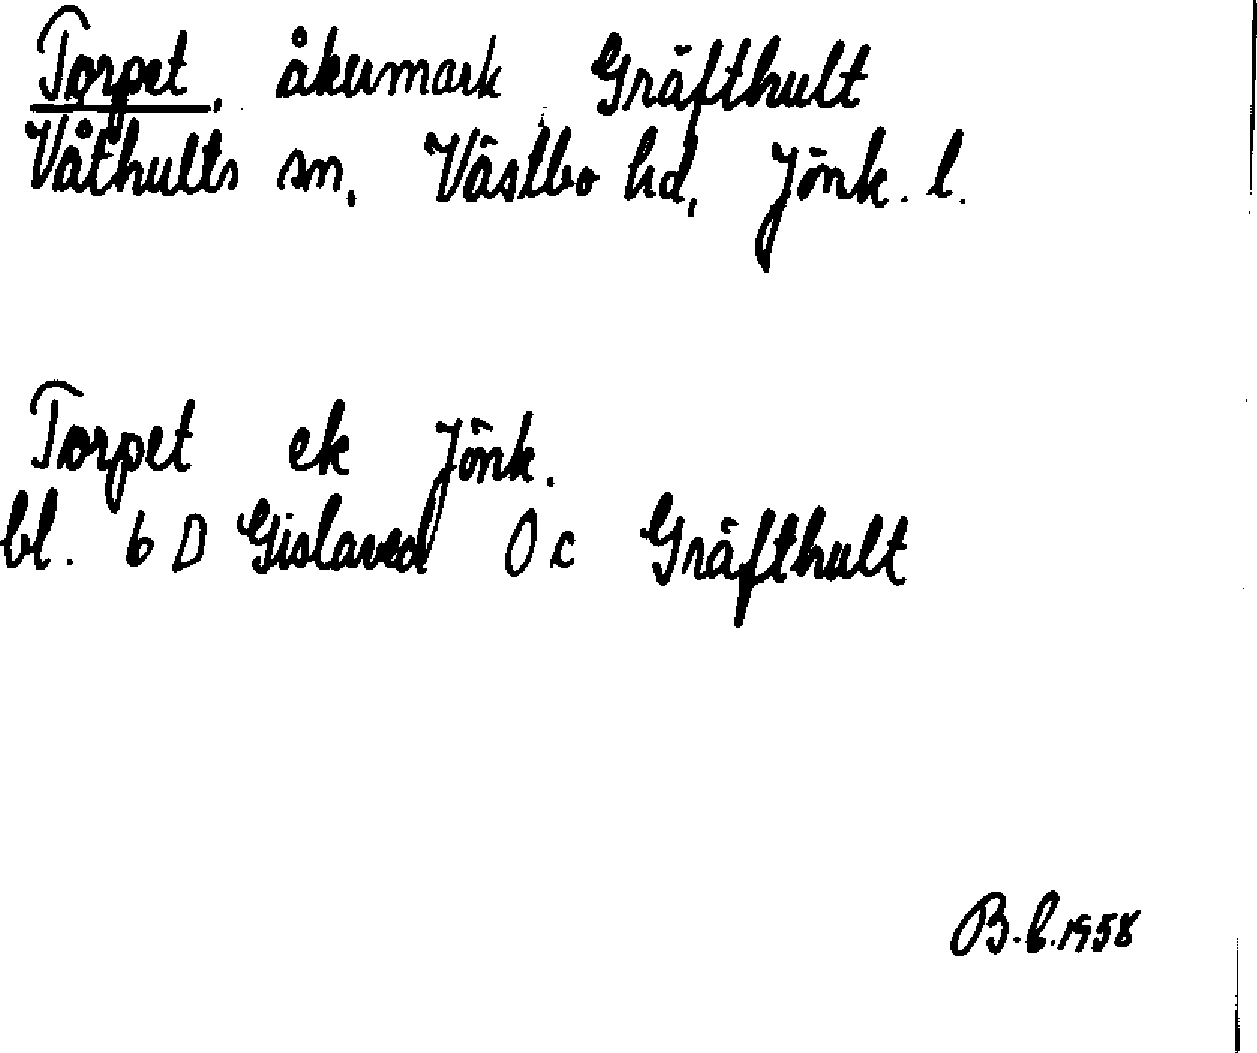 Torpet, åkermark Gräfthult
Våthults sn, Västbo hd, Jönk. l.
Torpet ek Jönk.
bl. 6 D Gislaved 0 c Gräfthult
B.L.1958